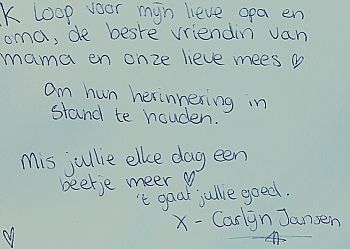 K loop voor mijn lieve opa en
oma, de beste vriendin van
mama en onze lieve mees ♡
Om hun herinnering in
stand te houden.
Mis jullie elke dag een
beetje meer ♡
't gaat jullie goed.
X - Carlijn Jansen